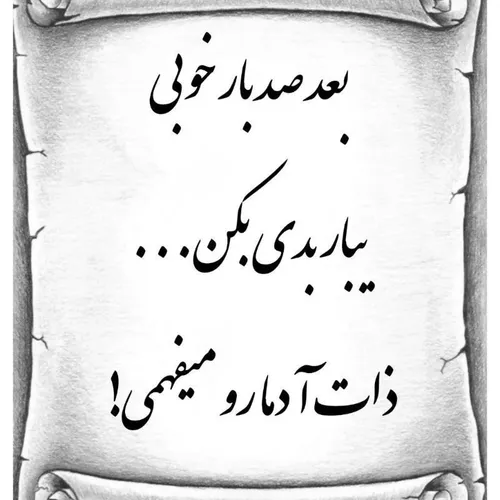 بعد صد بار خوبی
یبار بدی بکن...
ذات آدما رو میفهمی!